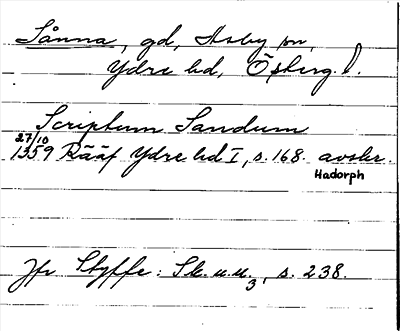 Sånna, gd, Asby sn,
Ydre hd, Österg. l.
Scriptum Sandum
27/10
1359 Rääf Ydre hd I, s. 168. avskr.
Hadorph
Jfr Styffe: Sk. u. u. 3, s. 238.